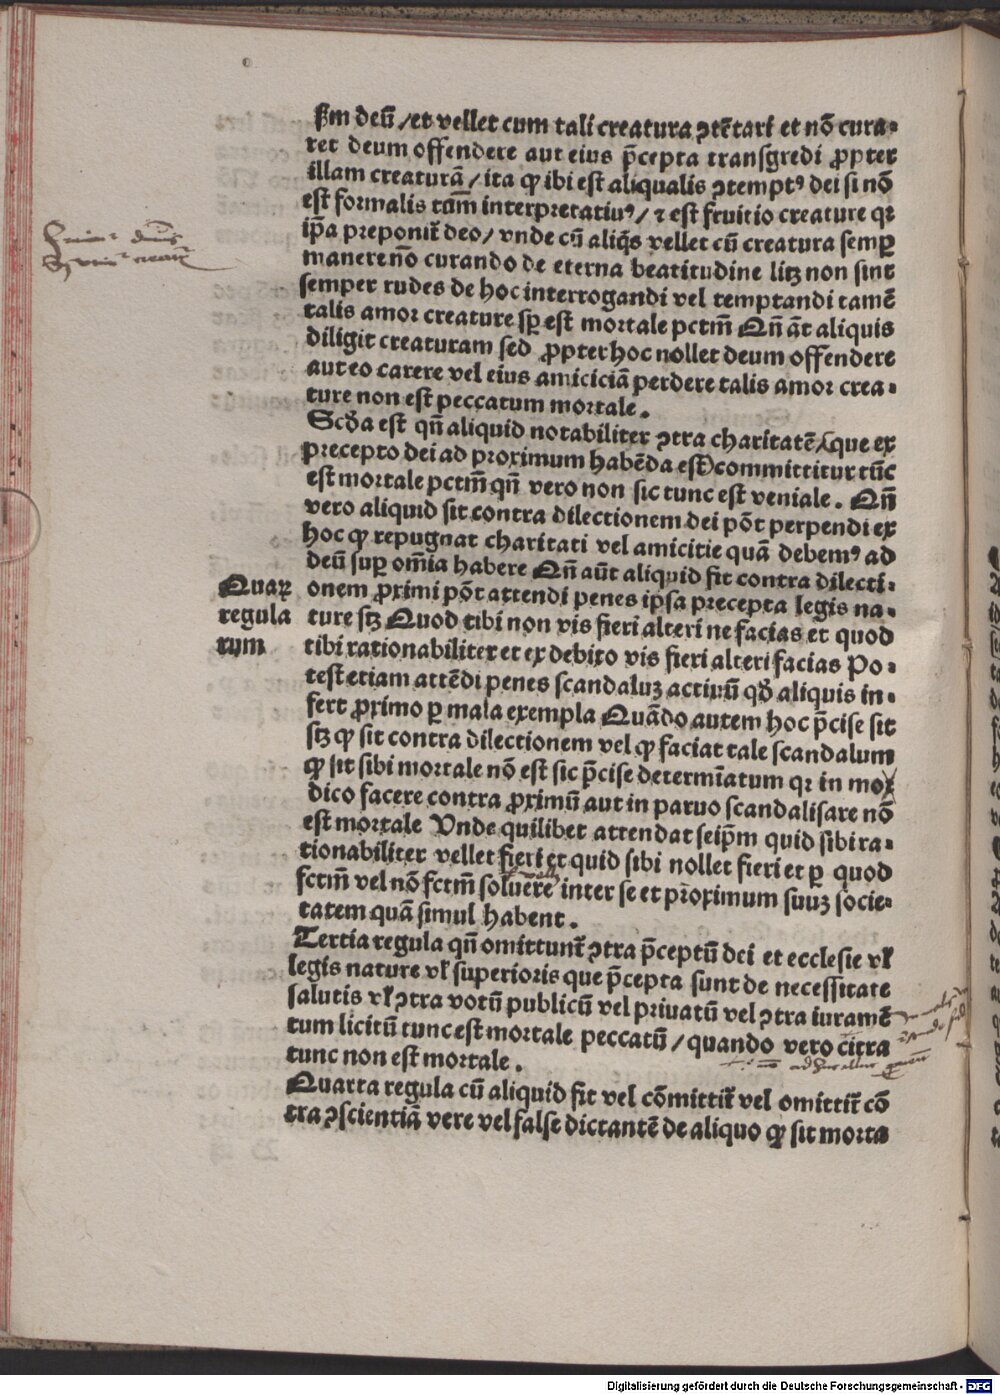 ſm deū / et vellet cum tali creatura ꝯtētari et nō cura-
ret deum offendere aut eius p̄cepta tranſgredi ꝓpter
illam creaturā / ita ꝙ ibi eſt aliqualis ꝯtemptꝰ dei ſi nō
eſt formalis tām interpretatiuꝰ / ⁊ eſt fruitio creature qꝛ
ip̄a preponit̄ deo / vnde cū aliq̄s vellet cū creatura ſemꝑ
manere nō curando de eterna beatitudine litꝫ non ſint
ſemper rudes de hoc interrogandi vel temptandi tamē
talis amor creature ſꝑ eſt mortale pctm̄ Qn̄ āt aliquis
diligit creaturam ſed ꝓpter hoc nollet deum offendere
aut eo carere vel eius amiciciā perdere talis amor crea-
ture non eſt peccatum mortale.
Scd̄a eſt qn̄ aliquid notabiliter ꝯtra charitatē (que ex
precepto dei ad proximum habēda eſt) committitur tūc
eſt mortale pctm̄ qn̄ vero non ſic tunc eſt veniale. Qn̄
vero aliquid ſit contra dilectionem dei pōt perpendi ex
hoc ꝙ repugnat charitati vel amicitie quā debemꝰ ad
deū ſuꝑ om̄ia habere Qn̄ aūt aliquid fit contra dilecti-
onem ꝓximi pōt attendi penes ipſa precepta legis na-
ture ſtꝫ Quod tibi non vis fieri alteri ne facias et quod
tibi rationabiliter et ex debito vis fieri alteri facias Po-
teſt etiam attēdi penes ſcandaluꝫ actiuū qd̄ aliquis in-
fert ꝓximo ꝑ mala exempla Quādo autem hoc p̄ciſe ſit
ſtꝫ ꝙ ſit contra dilectionem vel ꝙ faciat tale ſcandalum
ꝙ ſit ſibi mortale nō eſt ſic p̄ciſe determīatum qꝛ in mo
dico facere contra ꝓximū aut in paruo ſcandaliſare nō
eſt mortale Vnde quilibet attendat ſeip̄m quid ſibi ra-
tionabiliter vellet fieri et quid ſibi nollet fieri et ꝑ quod
fctm̄ vel nō fctm̄ ſoluere inter ſe et proximum ſuuꝫ ſocie-
tatem quā ſimul habent.
Tertia regula qn̄ omittunt̄ ꝯtra p̄ceptū dei et eccleſie vl̄
legis nature vl̄ ſuperioris que p̄cepta ſunt de neceſſitate
ſalutis vl̄ ꝯtra votū publicū vel priuatū vel ꝯtra iuramē
tum licitū tunc eſt mortale peccatū / quando vero citra
tunc non eſt mortale.
Quarta regula cū aliquid fit vel cōmittit̄ vel omittit̄ cō
tra ꝯſcientiā vere vel falſe dictantē de aliquo ꝙ ſit morta
Quaꝝ
regula
rum
Digitalisierung gefördert durch die Deutsche Forschungsgemeinschaft - DFG